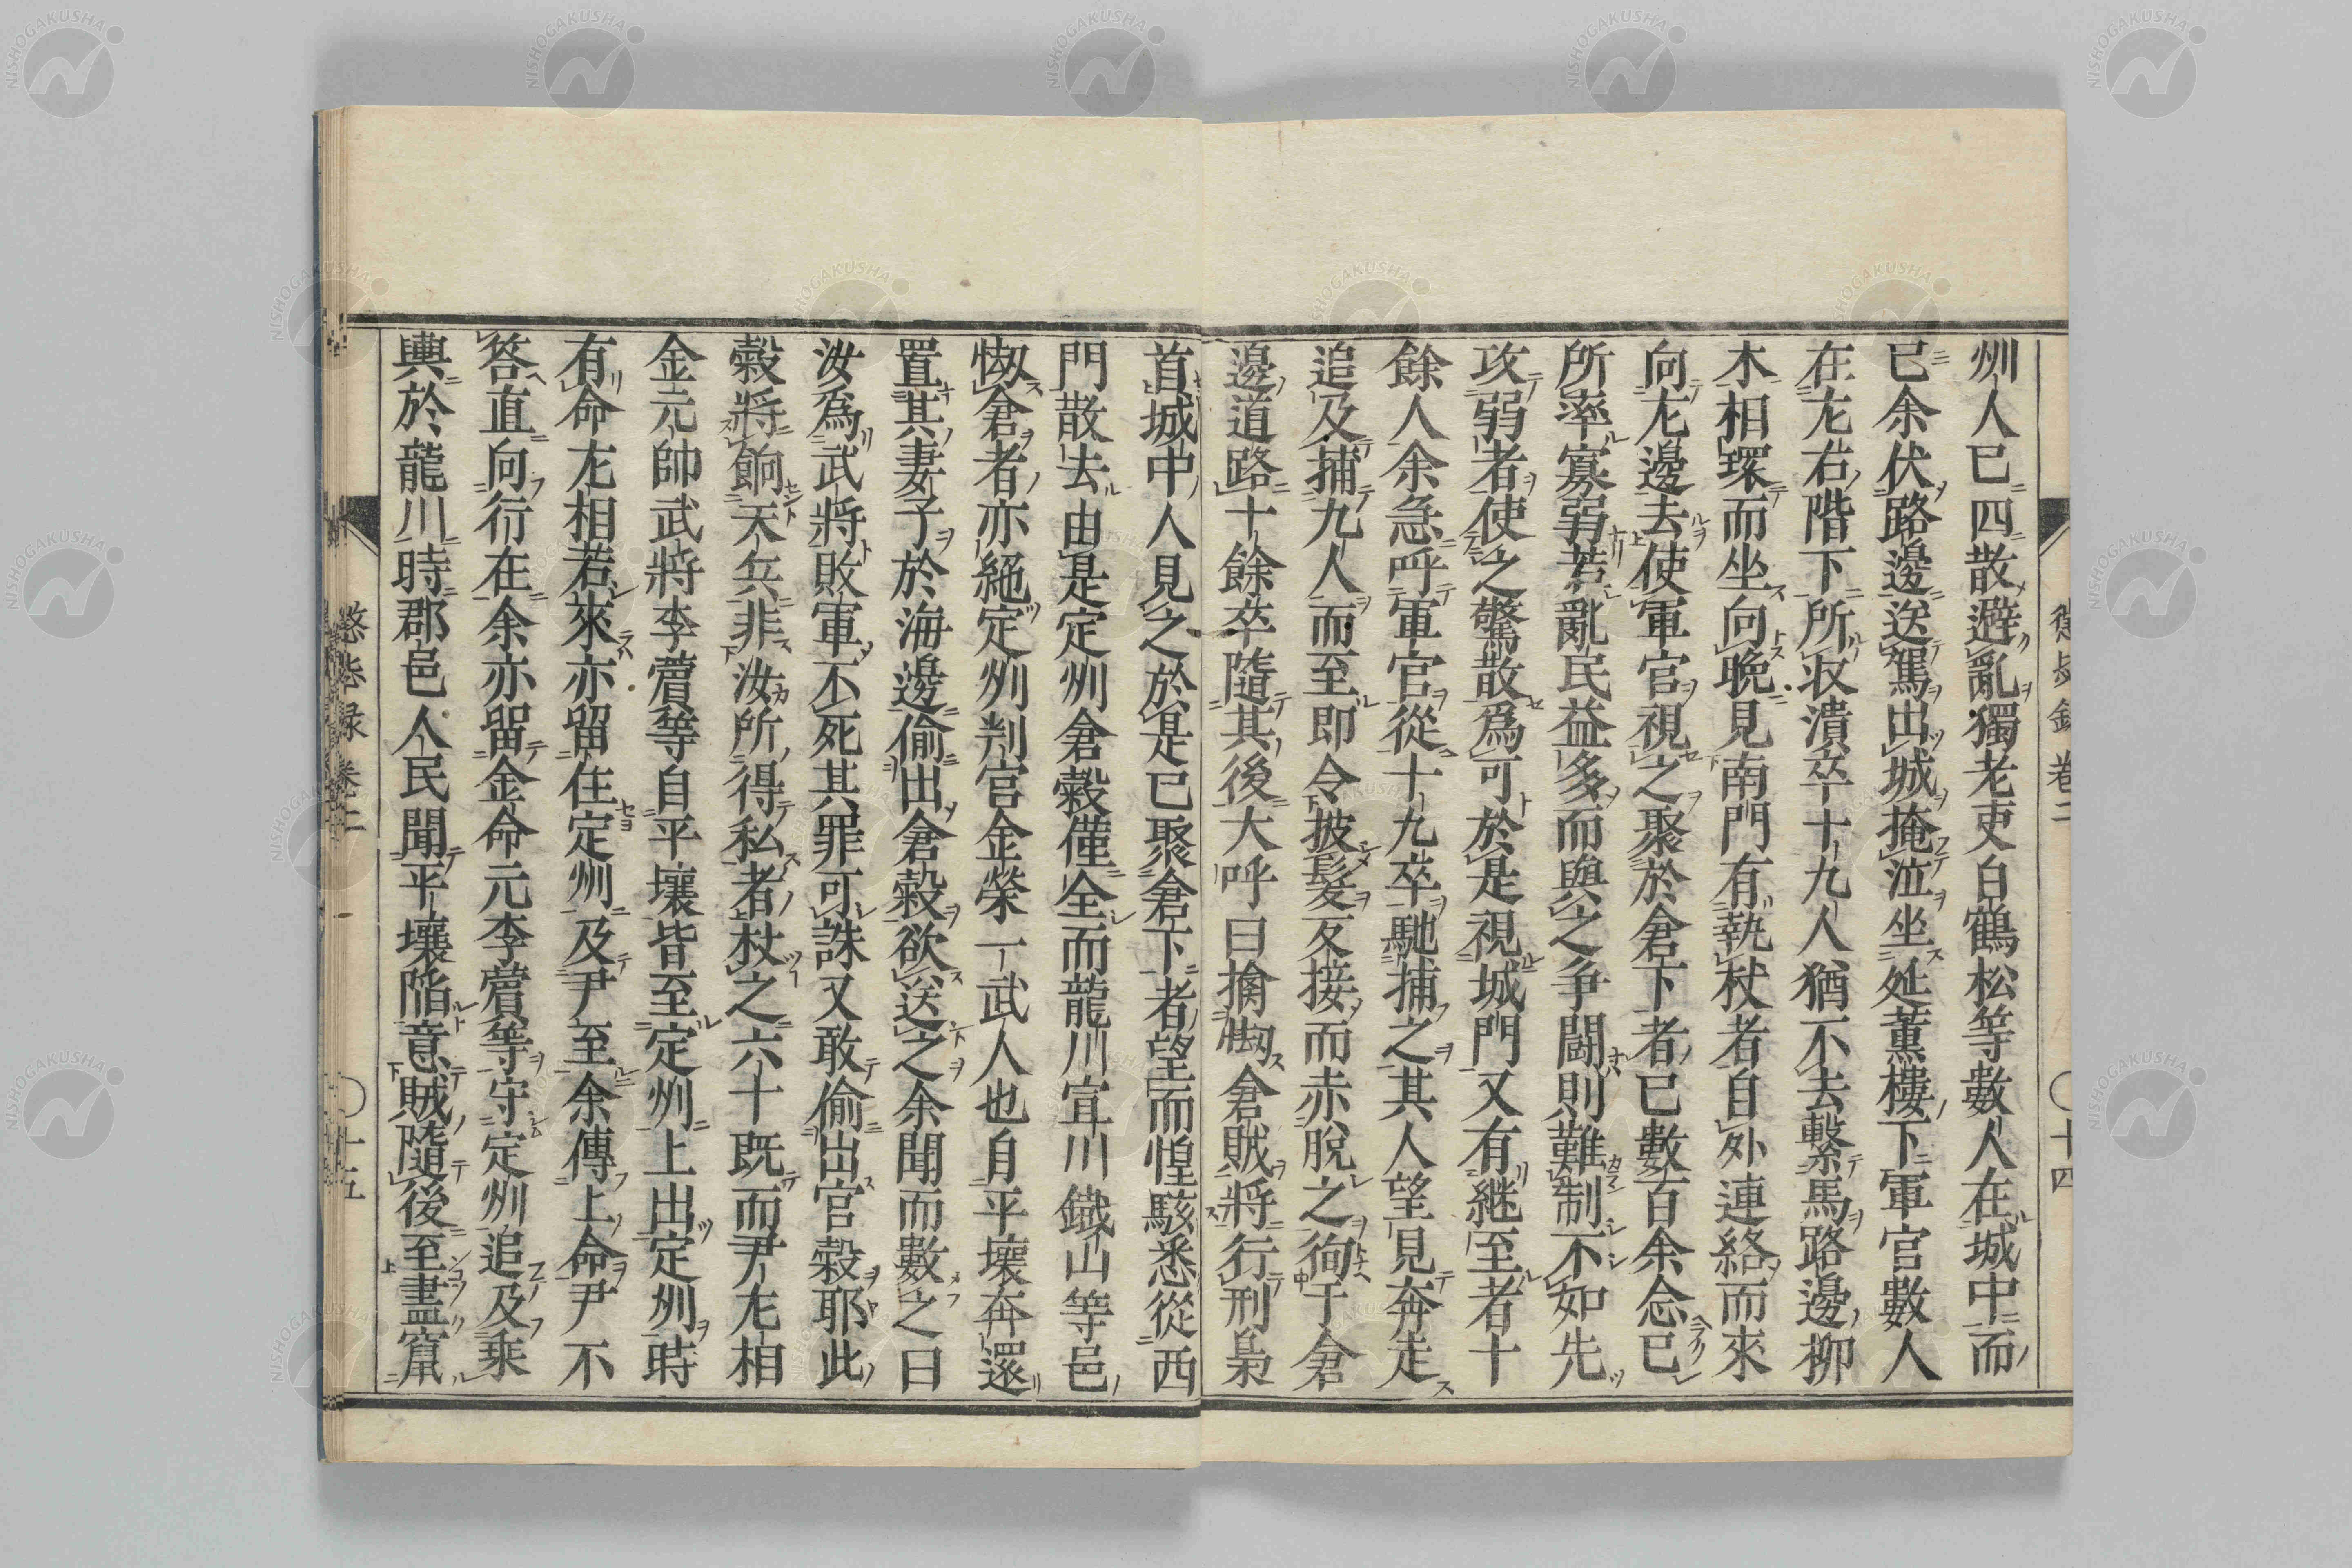 州人已四散避亂獨老吏白鶴松等數人在城中而
已余伏路邊送駕出城掩泣坐延薰樓下軍官數人
在左右階下所收潰卒十九人猶不去繫馬路邊柳
木相環而坐向晩見南門有執杖者自外連絡而來
向左邊去使軍官視之聚於倉下者已數百余念已
所率寡弱若亂民益多而與之爭鬪則難制不如先
攻弱者使之驚散爲可於是視城門又有継至者十
餘人余急呼軍官從十九卒馳捕之其人望見奔走
追及捕九人而至即令披髮反接而赤脫之徇于倉
邊道路十餘卒隨其後大呼曰擒刼倉賊將行刑梟
首城中人見之於是已聚倉下者望而惶駭悉從西
門散去由是定州倉穀僅全而龍川宣川鐵山等邑
刼倉者亦絕定州判官金榮一武人也自平壤奔還
置其妻子於海邊偷出倉穀欲送之余聞而數之曰
汝爲武將敗軍不死其罪可誅又敢偷出官穀耶此
穀將餉天兵非汝所得私者杖之六十既而尹左相
金元帥武將李薲等自平壤皆至定州上出定州時
有命左相若來亦留住定州及尹至余傳上命尹不
答直向行在余亦留金命元李薲等守定州追及乘
輿於龍川時郡邑人民聞平壤陷意賊隨後至盡竄
懲毖録 卷二 〇十四
懲毖録 卷二 〇十五
NISHOGAKUSHA